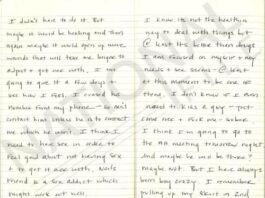 I didn't have to do it. But
maybe it would be healing and then
again maybe it would open up more
wounds that will take me longer to
adjust + get over with. I am
going to give it a few days +
see how I feel. I erased his
number from my phone – so he'll
contact him unless he is to contact
me when he want. I think I
need to have sex in order to
feel good about not having sex
+ to get it over with.
friend is a sex addict which
might work out well.
I know its not the healthiest
way to deal with things but
@ least its better than drugs
I am focused on myself + my
needs + sex seems – @ least
at this moment to be one of
them. I don't know if I even
need to kiss a guy – put
come me + fuck me – sober.
I think I'm going to go to
the AA meeting tomorrow night
and maybe he will be there?
maybe not. But I have always
been boy crazy. I remember
pulling up my skirt in 2nd